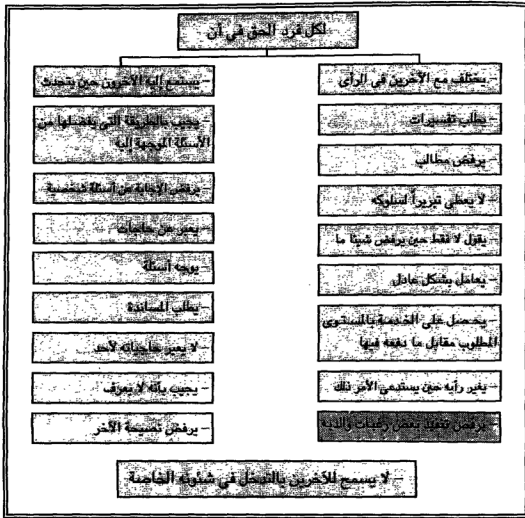 لكل فرد الحق في أن
- يختلف مع الآخرين في الرأي
- يطلب تفسيرات
- يرفض مطالب
- لا يعطي تبريراً لسلوكه
- يقول لا فقط حين يرفض شيئا ما
- يعامل بشكل عادل
- يحصل على الخدمة بالمستوى
المطلوب مقابل ما دفعه فيها
- يغير رأيه حين يستدعي الأمر ذلك
- يرفض تنفيذ بعض رغبات والديه
- يستمع إليه الآخرون حين يتحدث
- يجيب بالطريقة التي يفضلها عن
الأسئلة الموجهة إليه
- يرفض الإجابة عن أسئلة شخصية
- يعبر عن حاجات
- يوجه أسئلة
- يطلب المساندة
- لا يعير حاجياته لأحد
- يجيب بأنه لا يعرف
- يرفض نصيحة الآخر
- لا يسمح للآخرين بالتدخل في شئونه الخاصة